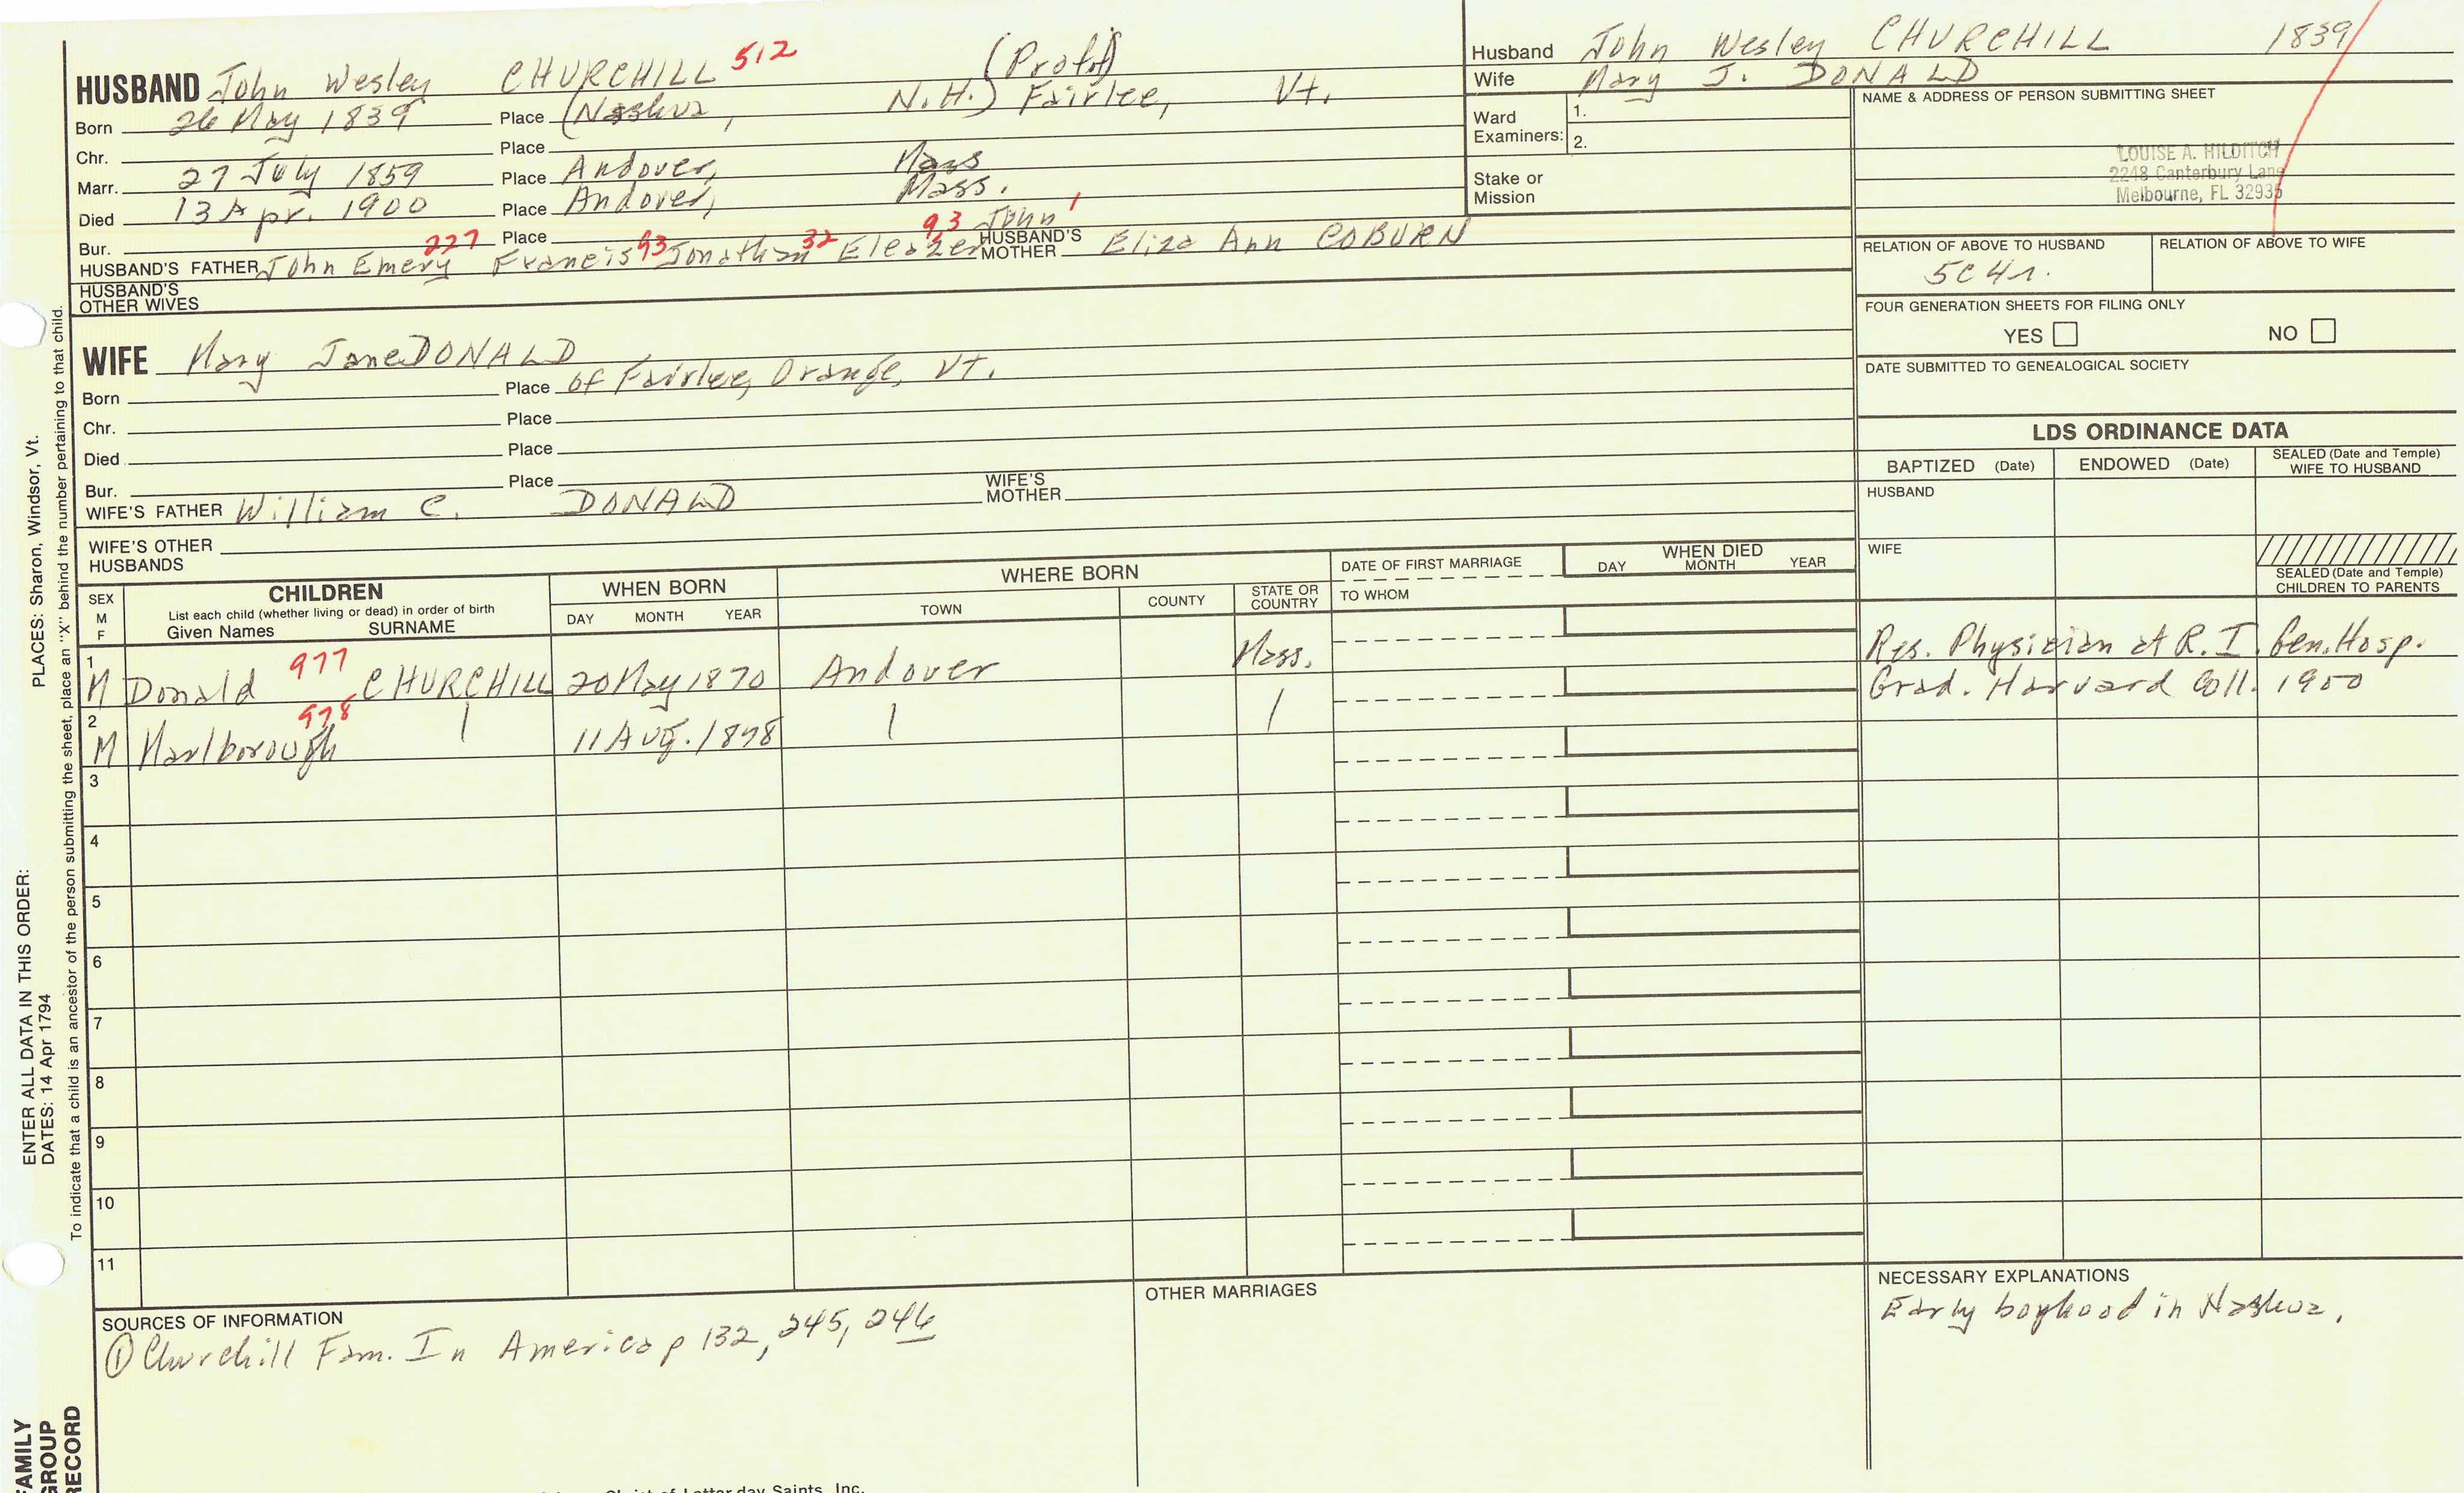 HUSBAND John Wesley CHURCHILL 512 (Prof)
Born 26 May 1839 Place (Nashua, N.H.) Fairlee, Vt.
Chr. Place
Marr. 27 July 1859 Place Andover, Mass
Died 13 Apr. 1900 Place Andover, Mass.
Bur. Place
HUSBAND'S FATHER John Emery 227 Francis 93 Jonathan 32 Eleazer 93 John 1 HUSBAND'S MOTHER Eliza Ann COBURN
HUSBAND'S OTHER WIVES
WIFE Mary Jane DONALD
Born Place of Fairlee, Orange, Vt.
Chr. Place
Died Place
Bur. Place
WIFE'S FATHER William C. DONALD WIFE'S MOTHER
WIFE'S OTHER HUSBANDS
Husband John Wesley CHURCHILL 1839
Wife Mary J. DONALD
Ward Examiners: 1.
2.
Stake or Mission
NAME & ADDRESS OF PERSON SUBMITTING SHEET
LOUISE A. HILDITCH
2248 Canterbury Lane
Melbourne, FL 32935
RELATION OF ABOVE TO HUSBAND RELATION OF ABOVE TO WIFE
5C4r.
FOUR GENERATION SHEETS FOR FILING ONLY
YES NO
DATE SUBMITTED TO GENEALOGICAL SOCIETY
LDS ORDINANCE DATA
BAPTIZED (Date) ENDOWED (Date) SEALED (Date and Temple) WIFE TO HUSBAND
HUSBAND
WIFE
SEALED (Date and Temple) CHILDREN TO PARENTS
SEX M F
CHILDREN
List each child (whether living or dead) in order of birth
Given Names SURNAME
WHEN BORN
DAY MONTH YEAR
WHERE BORN
TOWN COUNTY STATE OR COUNTRY
DATE OF FIRST MARRIAGE
TO WHOM
WHEN DIED
DAY MONTH YEAR
1 M Donald 977 CHURCHILL 20 May 1870 Andover Mass. Res. Physician at R.I. Gen. Hosp.
Grad. Harvard Coll. 1900
2 M Marlborough 978 | 11 Aug. 1878 | |
3
4
5
6
7
8
9
10
11
SOURCES OF INFORMATION
① Churchill Fam. In America p 132, 245, 246
OTHER MARRIAGES
NECESSARY EXPLANATIONS
Early boyhood in Nashua.
ENTER ALL DATA IN THIS ORDER:
DATES: 14 Apr 1794 PLACES: Sharon, Windsor, Vt.
To indicate that a child is an ancestor of the person submitting the sheet, place an "X" behind the number pertaining to that child.
FAMILY
GROUP
RECORD
Christ of Latter-day Saints, Inc.